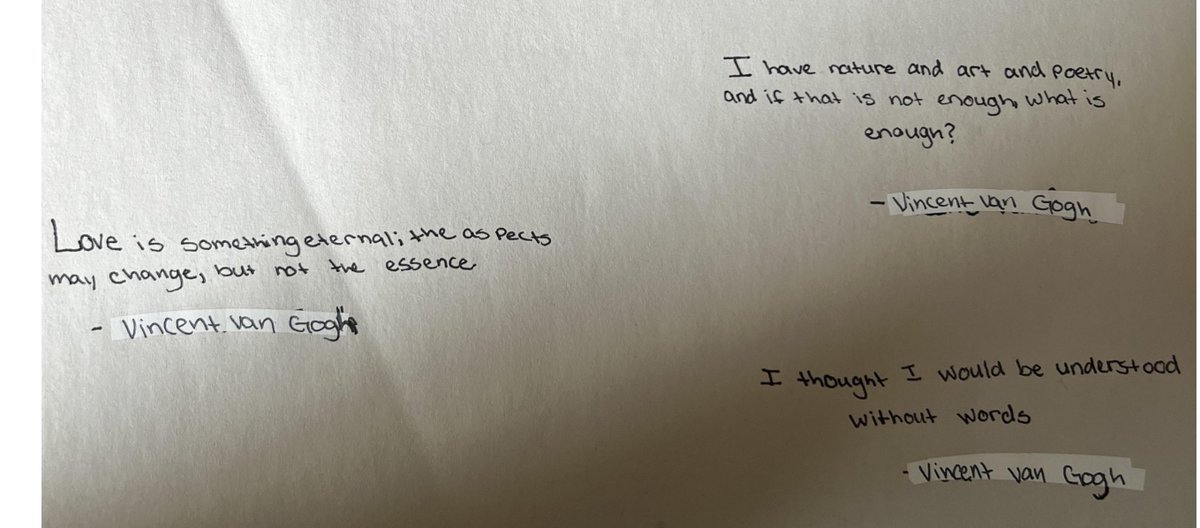 I have nature and art and poetry,
and if that is not enough, what is
enough?
- Vincent van Gogh
Love is something eternal; the aspects
may change, but not the essence
- Vincent van Gogh
I thought I would be understood
without words
- Vincent van Gogh